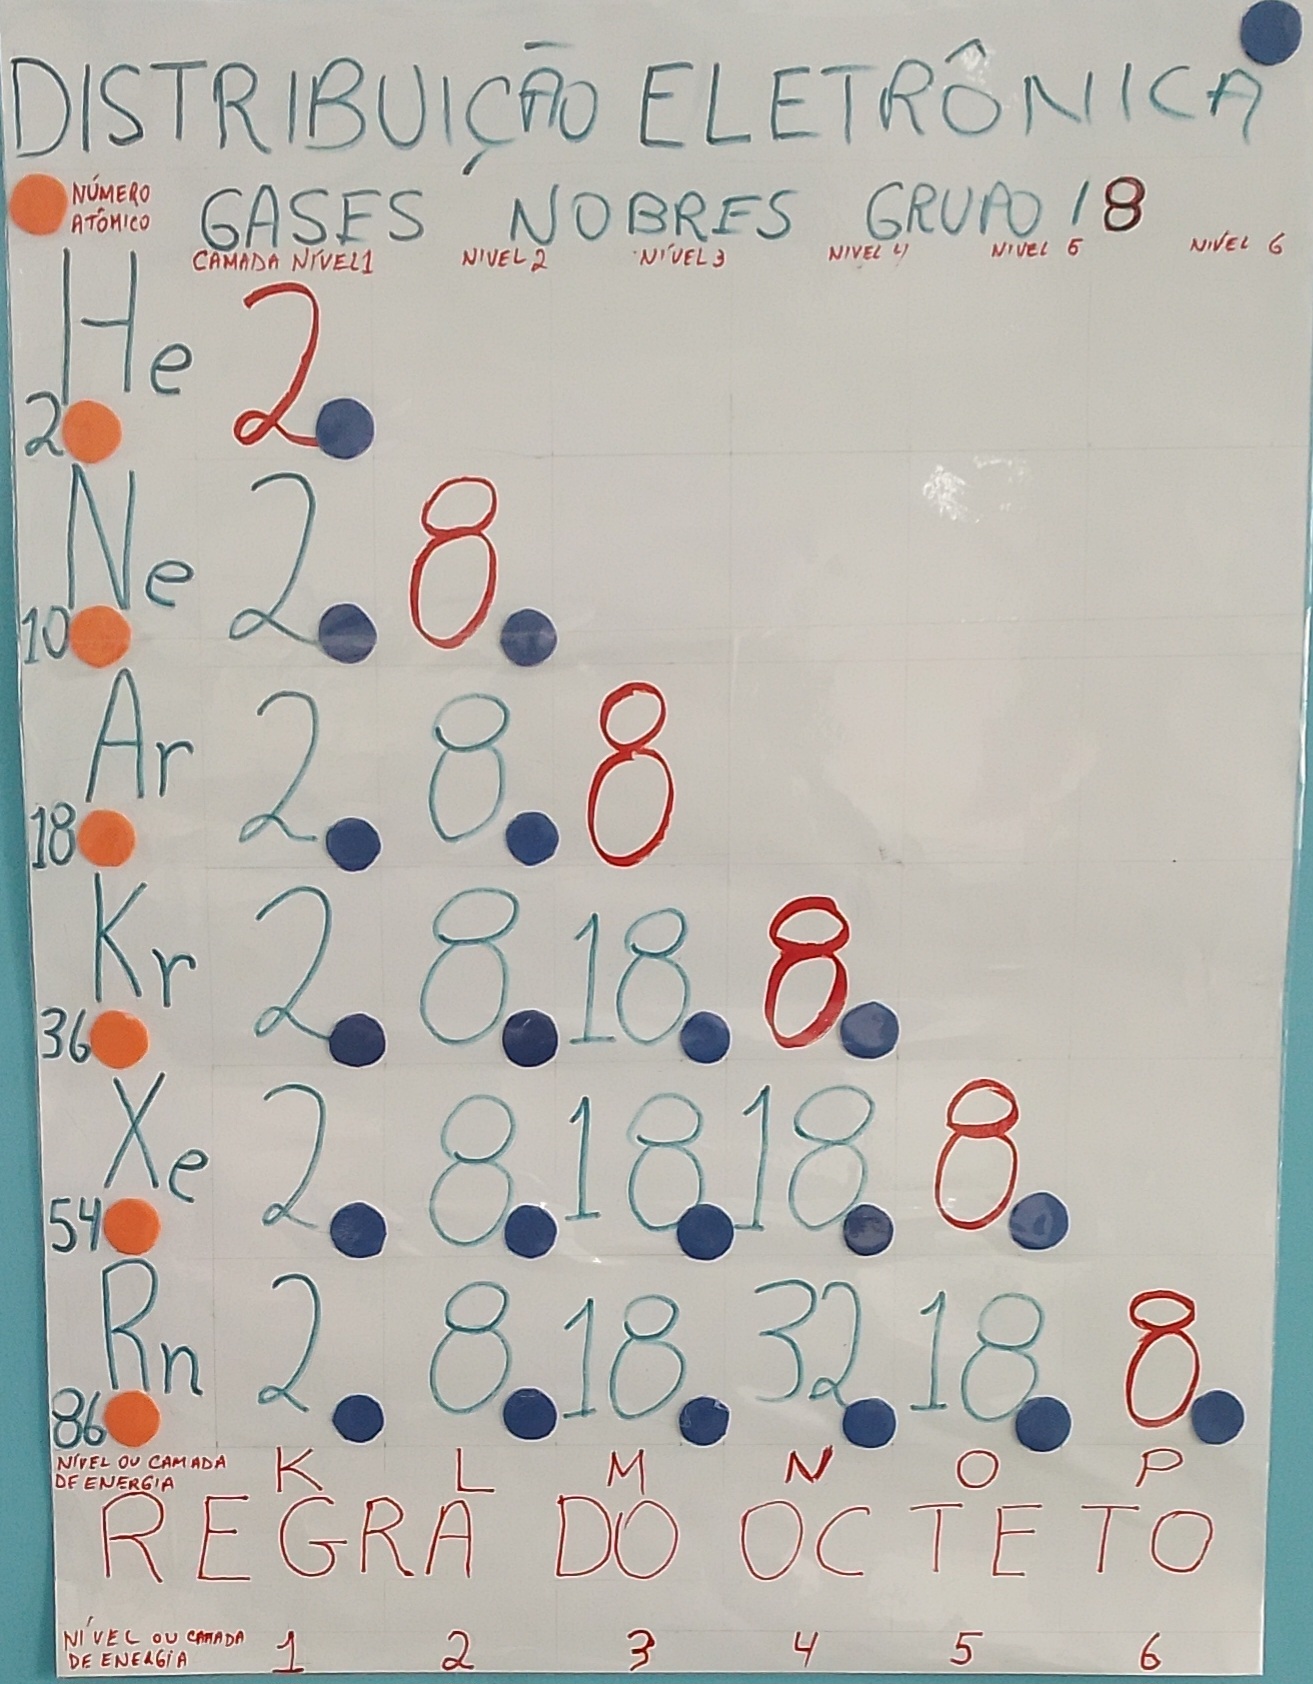 DISTRIBUIÇÃO ELETRÔNICA
NÚMERO ATÔMICO
GASES NOBRES GRUPO 18
CAMADA NÍVEL 1 NIVEL 2 NÍVEL 3 NIVEL 4 NIVEL 5 NIVEL 6
He 2
2
Ne 2 8
10
Ar 2 8 8
18
Kr 2 8 18 8
36
Xe 2 8 18 18 8
54
Rn 2 8 18 32 18 8
86
NÍVEL OU CAMADA DE ENERGIA K L M N O P
REGRA DO OCTETO
NÍVEL OU CAMADA DE ENERGIA 1 2 3 4 5 6